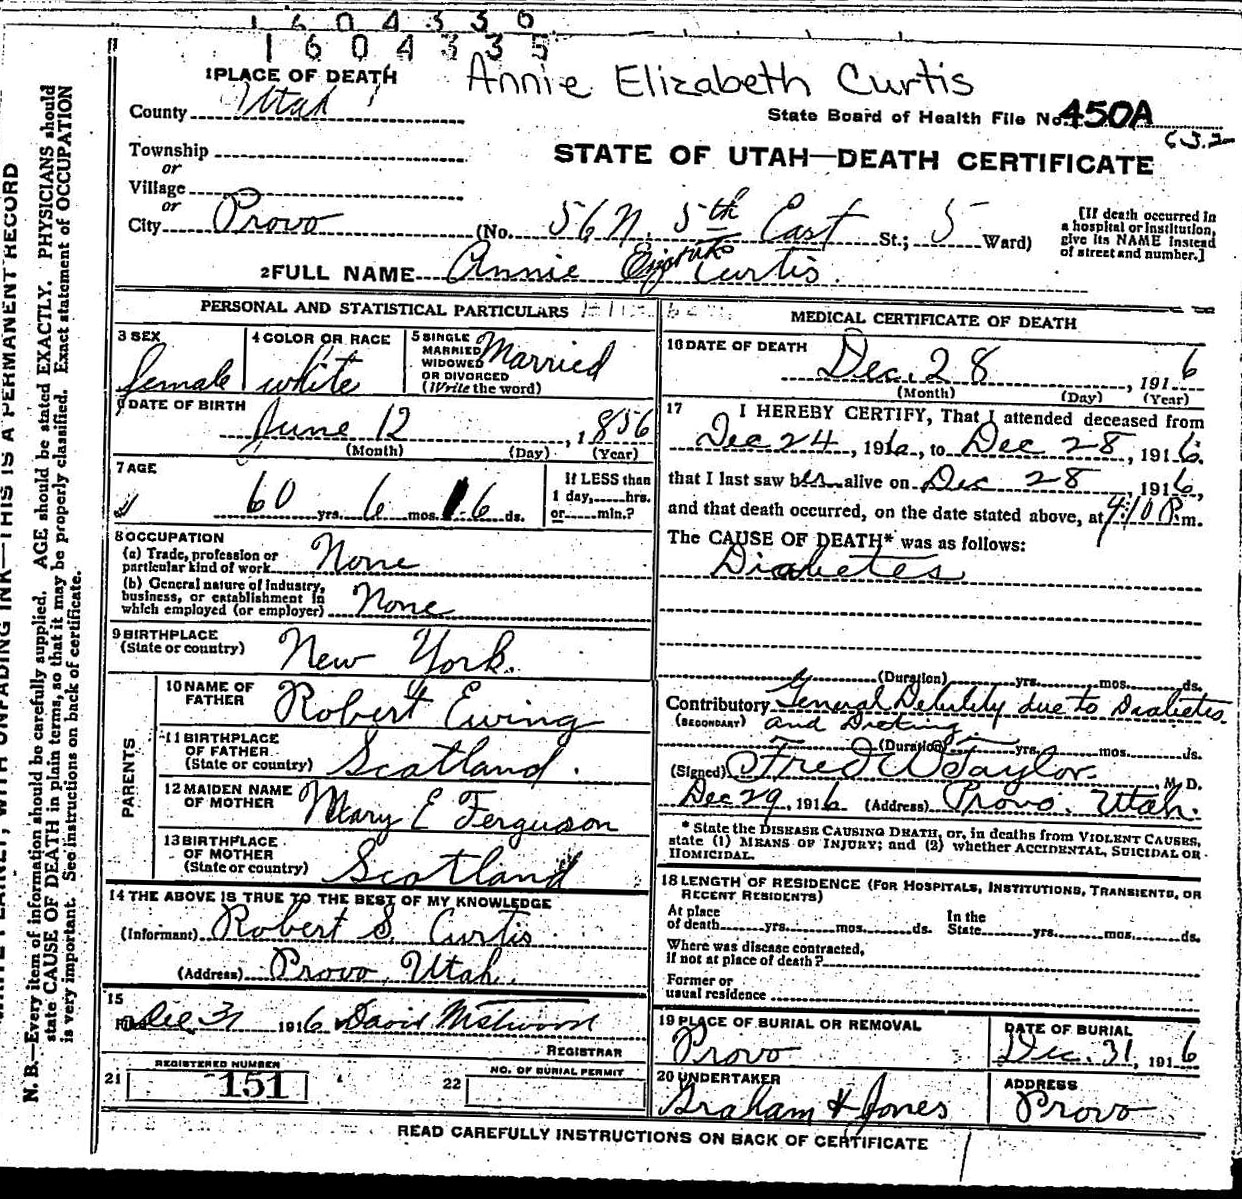 1604336
1604335
Annie Elizabeth Curtis
1 PLACE OF DEATH
County Utah
State Board of Health File No. 450A
Township
or
STATE OF UTAH—DEATH CERTIFICATE
Village
or
City Provo (No. 56 N. 5th East St.; 5 Ward)
[If death occurred in
a hospital or institution,
give its NAME instead
of street and number.]
2 FULL NAME Annie Elizabeth Curtis.
PERSONAL AND STATISTICAL PARTICULARS
3 SEX
female
4 COLOR OR RACE
white
5 SINGLE
MARRIED
WIDOWED
OR DIVORCED
(Write the word)
Married
DATE OF BIRTH
June 12, 1856
(Month) (Day) (Year)
7 AGE
60 yrs. 6 mos. 16 ds.
If LESS than
1 day, hrs.
or min.?
8 OCCUPATION
(a) Trade, profession or
particular kind of work None
(b) General nature of industry,
business, or establishment in
which employed (or employer) None
9 BIRTHPLACE
(State or country) New York.
PARENTS
10 NAME OF
FATHER Robert Ewing
11 BIRTHPLACE
OF FATHER
(State or country) Scotland.
12 MAIDEN NAME
OF MOTHER Mary E Ferguson
13 BIRTHPLACE
OF MOTHER
(State or country) Scotland
14 THE ABOVE IS TRUE TO THE BEST OF MY KNOWLEDGE
(Informant) Robert S. Curtis
(Address) Provo, Utah.
15
Filed Dec 31 1916 David
REGISTRAR
REGISTERED NUMBER
21 151
NO. OF BURIAL PERMIT
22
MEDICAL CERTIFICATE OF DEATH
16 DATE OF DEATH
Dec. 28, 1916
(Month) (Day) (Year)
17 I HEREBY CERTIFY, That I attended deceased from
Dec 24, 1916, to Dec 28, 1916.
that I last saw her alive on Dec 28, 1916,
and that death occurred, on the date stated above, at 9:10 P.m.
The CAUSE OF DEATH* was as follows:
Diabetes
(Duration) yrs. mos. ds.
Contributory General Debility due to Diabetes
(SECONDARY) and Dieting
(Duration) yrs. mos. ds.
(Signed) Fred W Taylor. M. D.
Dec 29, 1916 (Address) Provo. Utah.
* State the DISEASE CAUSING DEATH, or, in deaths from VIOLENT CAUSES,
state (1) MEANS OF INJURY; and (2) whether ACCIDENTAL, SUICIDAL OR
HOMICIDAL.
18 LENGTH OF RESIDENCE (FOR HOSPITALS, INSTITUTIONS, TRANSIENTS, OR
RECENT RESIDENTS)
At place
of death yrs. mos. ds.
In the
State yrs. mos. ds.
Where was disease contracted,
if not at place of death?
Former or
usual residence
19 PLACE OF BURIAL OR REMOVAL
Provo
DATE OF BURIAL
Dec. 31, 1916
20 UNDERTAKER
Graham & Jones
ADDRESS
Provo
READ CAREFULLY INSTRUCTIONS ON BACK OF CERTIFICATE
UNFADING INK—THIS IS A PERMANENT RECORD
N. B.—Every item of information should be carefully supplied. AGE should be stated EXACTLY. PHYSICIANS should
state CAUSE OF DEATH in plain terms, so that it may be properly classified. Exact statement of OCCUPATION
is very important. See instructions on back of certificate.